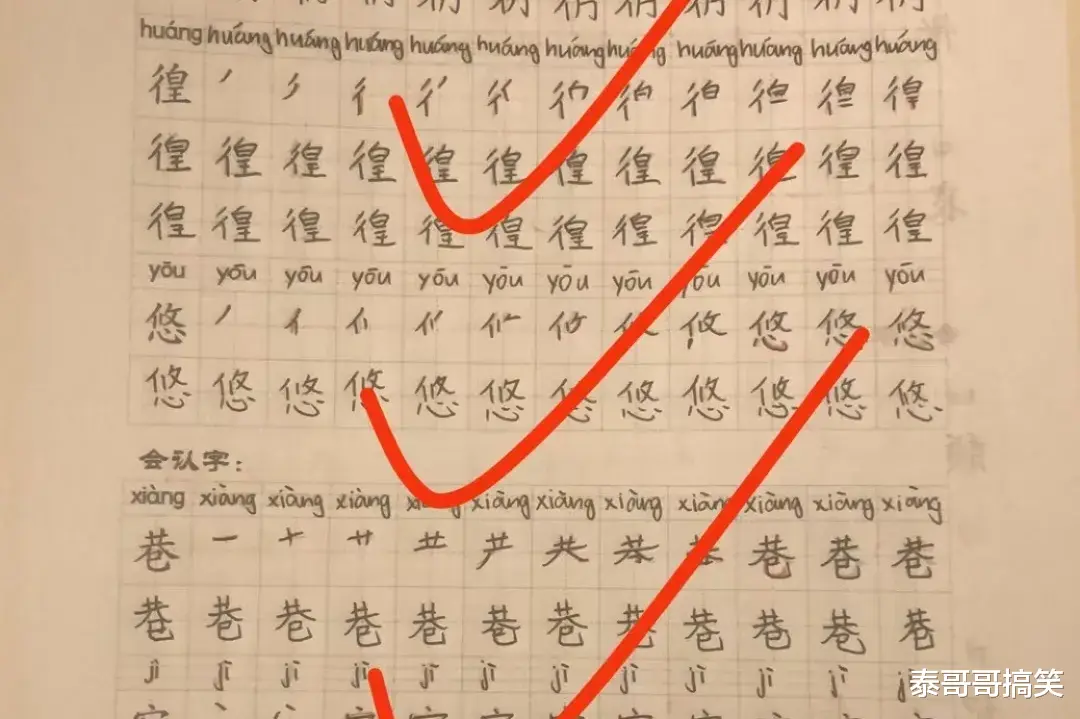 huáng huáng huáng huáng huáng huáng huáng huáng huáng huáng huáng huáng
徨 丿 彳
徨 徨 徨 徨 徨 徨 徨 徨 徨 徨 徨 徨
徨 徨 徨 徨 徨 徨 徨 徨 徨 徨 徨 徨
yōu yōu yōu yōu yōu yōu yōu yōu yōu yōu yōu yōu
悠 丿 亻 攸 悠 悠 悠
悠 悠 悠 悠 悠 悠 悠 悠 悠 悠 悠 悠
会认字：
xiàng xiàng xiàng xiàng xiàng xiàng xiàng xiàng xiàng xiàng xiàng xiàng
巷 一 十 艹 龷 共 巷 巷 巷
巷 巷 巷 巷 巷 巷 巷 巷 巷 巷 巷 巷
jì jì jì jì jì jì jì jì jì jì jì jì
泰哥哥搞笑